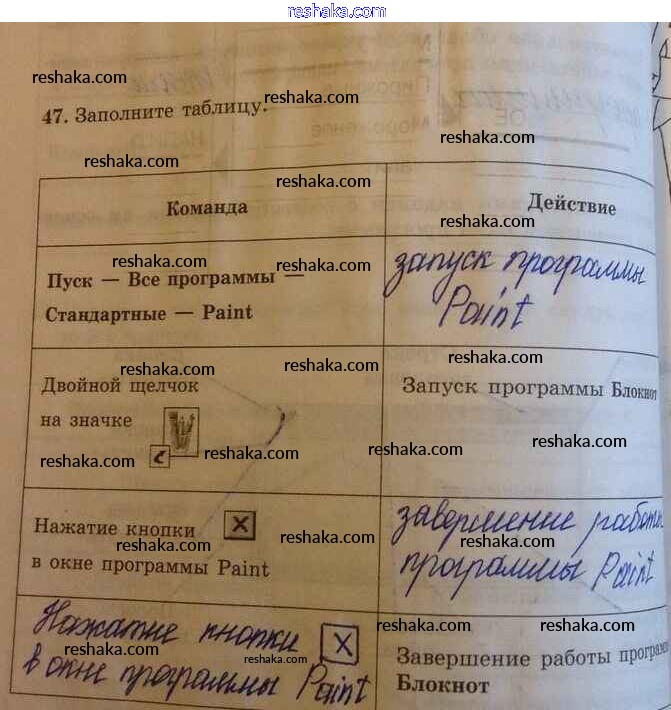 reshaka.com
reshaka.com
reshaka.com
47. Заполните таблицу.
reshaka.com
reshaka.com
reshaka.com
reshaka.com
Команда
Действие
reshaka.com
reshaka.com
reshaka.com
Пуск — Все программы —
Стандартные — Paint
запуск программы
Paint
reshaka.com
reshaka.com
reshaka.com
reshaka.com
Двойной щелчок
на значке
Запуск программы Блокнот
reshaka.com
reshaka.com
reshaka.com
reshaka.com
reshaka.com
Нажатие кнопки X
в окне программы Paint
завершение работы
программы Paint
reshaka.com
reshaka.com
reshaka.com
reshaka.com
reshaka.com
reshaka.com
reshaka.com
Нажатие кнопки X
в окне программы Paint
Завершение работы програм
Блокнот
reshaka.com
reshaka.com
reshaka.com
reshaka.com
reshaka.com